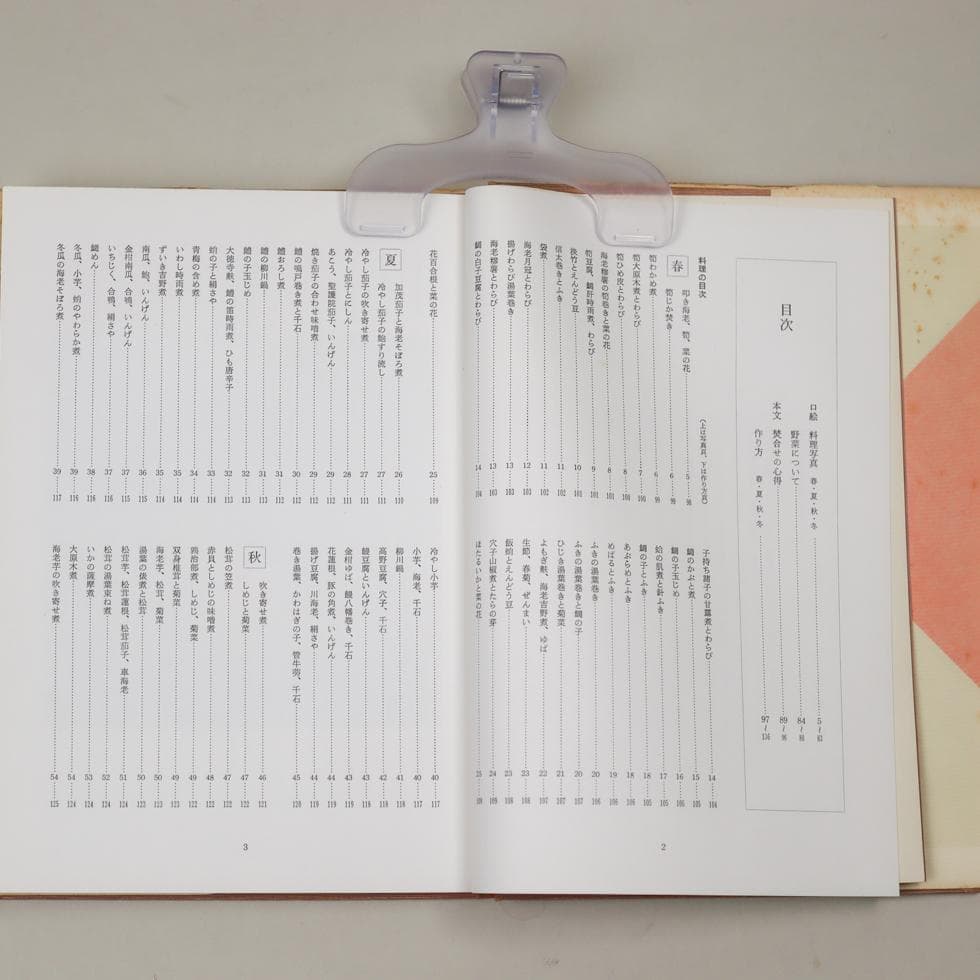 目次
口絵 料理写真 春・夏・秋・冬 5〜83
野菜について 84〜88
本文 焚合せの心得 89〜96
作り方 春・夏・秋・冬 97〜136
料理の目次 (上は写真頁、下は作り方頁)
春
叩き海老、筍、菜の花 5 98
筍じか焚き 6 99
筍わかめ煮 6 99
筍大原木煮とわらび 7 100
筍ひめ皮とわらび 8 100
海老糝薯の筍巻きと菜の花 8 101
筍豆腐、鯛肝時雨煮、わらび 9 101
淡竹とえんどう豆 10 101
信太巻きとふき 11 102
袋煮 11 102
海老月冠とわらび 12 103
揚げわらび湯葉巻き 13 103
海老糝薯とわらび 13 103
鯛の白子豆腐とわらび 14 104
子持ち諸子の甘露煮とわらび 14 104
鯛のかぶと煮 15 105
鯛の子玉じめ 16 105
蛤の肌煮と針ふき 17 105
鯛の子とふき 18 105
あぶらめとふき 18 106
めばるとふき 19 106
ふきの湯葉巻き 20 106
ふきの湯葉巻きと鯛の子 20 107
ひじき湯葉巻きと菊菜 21 107
よもぎ麩、海老吉野煮、ゆば 22 107
生節、春菊、ぜんまい 23 108
飯蛸とえんどう豆 23 108
穴子山椒煮とたらの芽 24 108
ほたるいかと菜の花 25 109
花百合根と菜の花 25 109
夏
加茂茄子と海老そぼろ煮 26 110
冷やし茄子の鮑すり流し 27 111
冷やし茄子の吹き寄せ煮 27 111
冷やし茄子とにしん 28 111
あこう、聖護院茄子、いんげん 29 112
焼き茄子の合わせ味噌煮 29 112
鱧の鳴戸巻き煮と千石 30 112
鱧おろし煮 31 112
鱧の柳川鍋 31 113
鱧の子玉じめ 32 113
大徳寺麩、鱧の笛時雨煮、ひも唐辛子 32 113
蛸の子と絹さや 33 114
青梅の含め煮 34 114
いわし時雨煮 35 114
ずいき吉野煮 35 114
南瓜、鮑、いんげん 36 115
金柑南瓜、合鴨、いんげん 37 115
いちじく、合鴨、絹さや 37 116
鯛めん 38 116
冬瓜、小芋、蛸のやわらか煮 39 116
冬瓜の海老そぼろ煮 39 117
冷やし小芋 40 117
小芋、海老、千石 40 117
柳川鍋 41 118
高野豆腐、穴子、千石 42 118
鰻豆腐といんげん 43 118
金柑ゆば、鰻八幡巻き、千石 43 119
花蓮根、豚の角煮、いんげん 44 119
揚げ豆腐、川海老、絹さや 44 119
巻き湯葉、かわはぎの子、管牛蒡、千石 45 120
秋
吹き寄せ煮 46 121
しめじと菊菜 47 122
松茸の笠煮 47 122
赤貝としめじの味噌煮 48 122
鶏治部煮、しめじ、菊菜 49 122
双身椎茸と菊菜 49 123
海老芋、松茸、菊菜 50 123
湯葉の俵煮と松茸 50 123
松茸芋、松茸蓮根、松茸茄子、車海老 51 123
松茸の湯葉束ね煮 52 124
いかの薩摩煮 53 124
大原木煮 54 124
海老芋の吹き寄せ煮 54 125
2
3